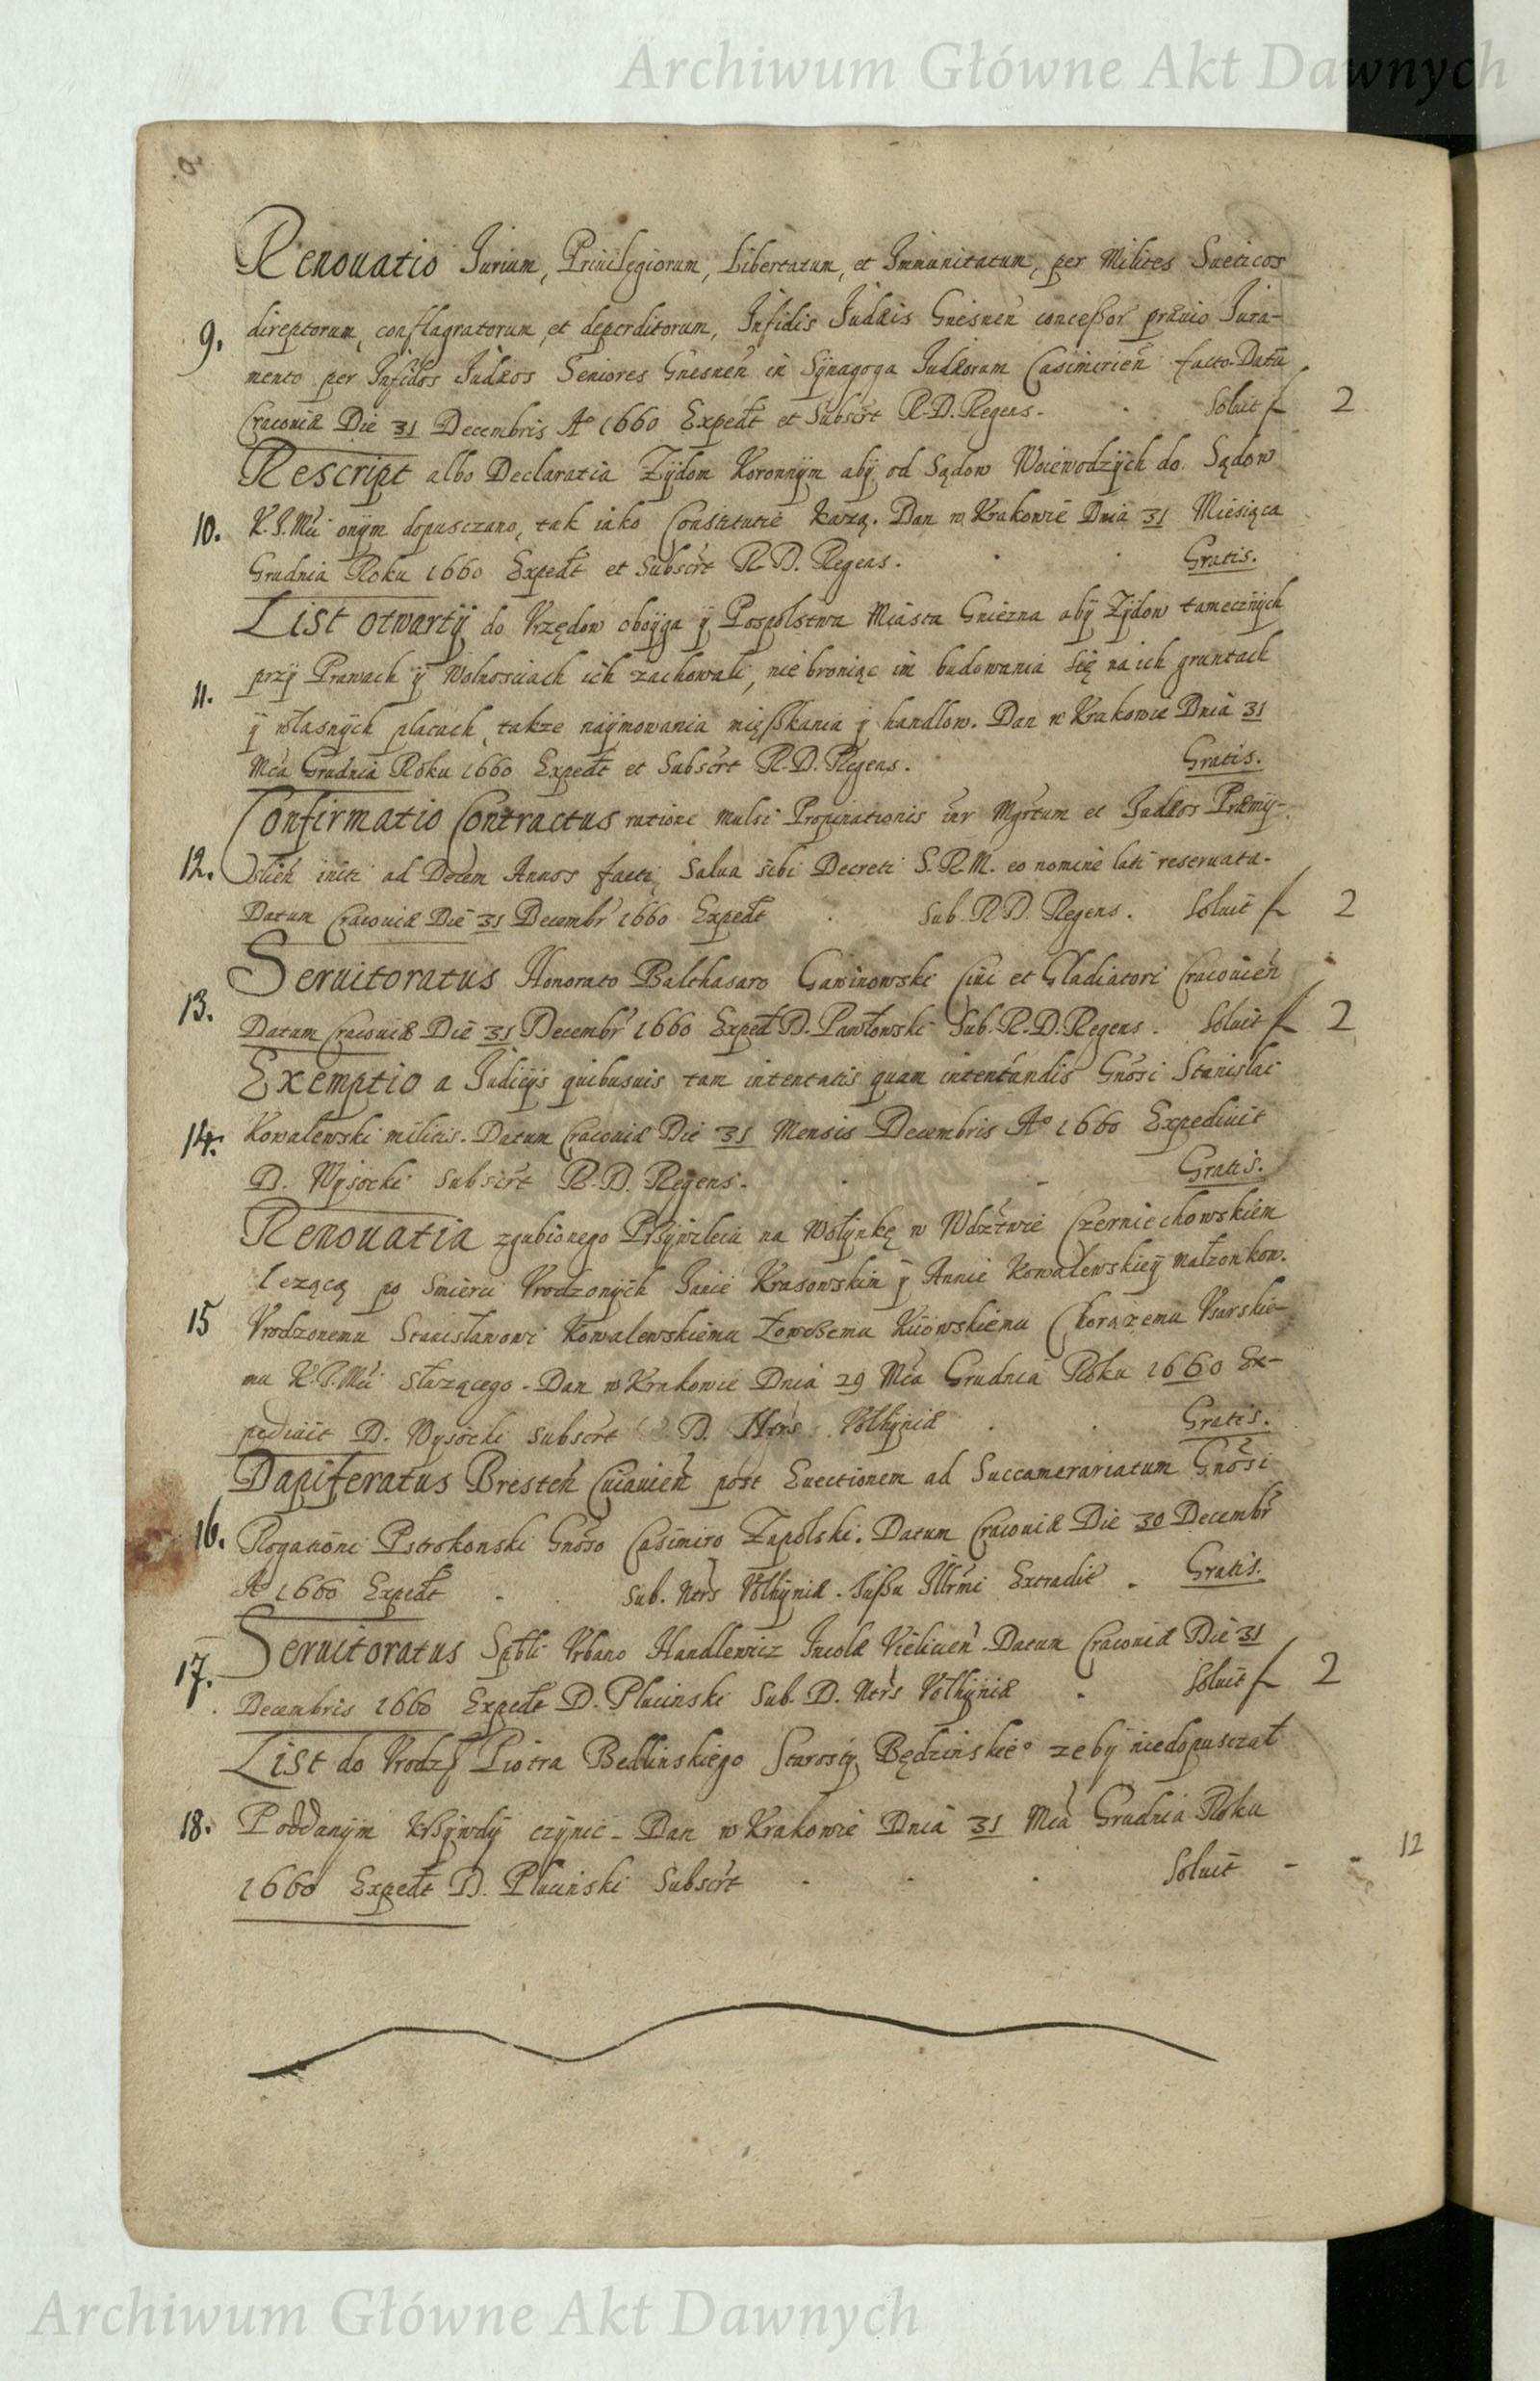 Archiwum Główne Akt Dawnych
Renouatio Jurium, Priuilegiorum, Libertatum, et Immunitatum, per Milites Sueticos
9. direptorum, conflagratorum, et deperditorum, Infidis Judæis Gnesnen̄ conceßor præuio Jura-
mento per Infidos Judæos Seniores Gnesnen̄ in Sÿnagoga Judæorum Casimirien̄ facto. Datū
Cracouiæ Die 31 Decembris Aº 1660 Expedt et Subscrt R. D. Regens. Soluit f 2
Rescript albo Declaratia Zÿdom Koronnÿm abÿ od Sądow Woiewodzÿch do Sądow
10. K. J. Mci onÿm dopusczano, tak iako Constitutie każą. Dan w Krakowie Dnia 31 Miesiąca
Grudnia Roku 1660 Expedt et Subscrt R D. Regens. Gratis.
List otwartÿ do Vrzędow oboÿga ÿ Pospolstwa Miasta Gniezna abÿ Zÿdow tamecznÿch
przÿ Prawach ÿ Wolnosciach ich zachowali, nie broniąc im budowania się na ich gruntach
11. ÿ własnÿch placach, takze naÿmowania mięßkania ÿ handlow. Dan w Krakowie Dnia 31
Mca Grudnia Roku 1660 Expedt et Subscrt R. D. Regens. Gratis.
Confirmatio Contractus ratione mulsi Propinationis inr Mgrtum et Judæos Præmÿ-
12. slien̄ initi ad Decem Annos facti, Salua sibi Decreti S. R. M. eo nomine lati reseruata.
Datum Cracouiæ Die 31 Decembr 1660 Expedt Sub. R D. Regens. Soluit f 2
Seruitoratus Honorato Balthasaro Gawinowski Ciui et Gladiatori Cracouien̄
13. Datum Cracouiæ Die 31 Decembr 1660 Exped D. Pawłowski Sub. R. D. Regens. Soluit f 2
Exemptio a Judicÿs quibusuis tam intentatis quam intentandis Gnosi Stanislai
14. Kowalewski militis. Datum Cracouiæ Die 31 Mensis Decembris Aº 1660 Expediuit
D. Wÿsocki Subscrt R. D. Regens. Gratis.
Renouatia zgubionego Prżÿwileiu na Wołÿnkę w Wdztwie Czerniechowskiem
lezącą po Smierci Vrodzonÿch Janie Krasowskim ÿ Annie Kowalewskieÿ małzonkow.
15 Vrodzonemu Stanisławowi Kowalewskiemu Łowczemu Kiiowskiemu Chorązemu Vsarskie-
mu K. J. Mci słuzącego. Dan w Krakowie Dnia 29 Mca Grudnia Roku 1660 Ex-
pediuit D. Wysocki Subscrt D. Ntrs Volhÿniæ Gratis.
Dapiferatus Bresten̄ Cuiauien̄ post Euectionem ad Succamerariatum Gnosi
16. Rogationi Pstrokonski Gnoso Casimiro Zapolski. Datum Cracouiæ Die 30 Decembr
Aº 1660 Expedt Sub. Ntrs Volhÿniæ. Jußu Illrmi Extradit. Gratis.
Seruitoratus Spbli Vrbano Handlewicz Incolæ Vielicien̄ Datum Cracouiæ Die 31
17. Decembris 1660 Expedt D. Plucinski Sub. D. Ntrs Volhÿniæ Soluit f 2
List do Vrodz Piotra Bedlinskiego Starostÿ Będzinskieº zebÿ niedopusczał
18. Poddanÿm krżÿwdÿ czÿnic. Dan w Krakowie Dnia 31 Mca Grudnia Roku
1660 Expedt D. Plucinski Subscrt Soluit - - 12
Archiwum Główne Akt Dawnych